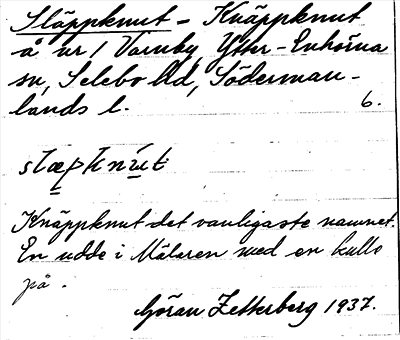 Släppknut - Knäppknut
å nr 1 Varnby, Ytter-Enhörna
sn, Selebo hd, Söderman-
lands l. 6.
slæpknut
Knäppknut det vanligaste namnet.
En udde i Mälaren med en kulle
på.
Göran Zetterberg 1937.